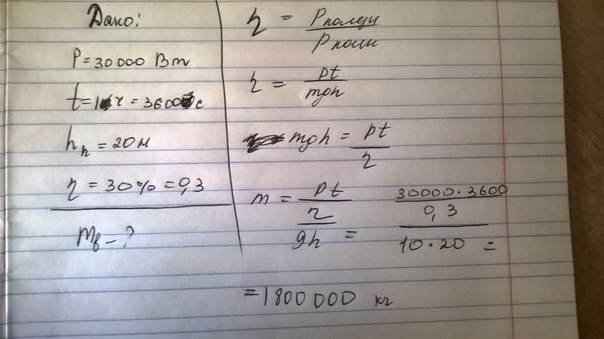 Дано:
P = 30000 Вт
t = 1 ч = 3600 с
hп = 20 м
η = 30% = 0,3
mв - ?
η = Pполезн / Pполн
η = pt / mgh
mgh = pt / η
m = pt / η / gh = 30000·3600 / 0,3 / 10·20 =
= 1800 000 кг